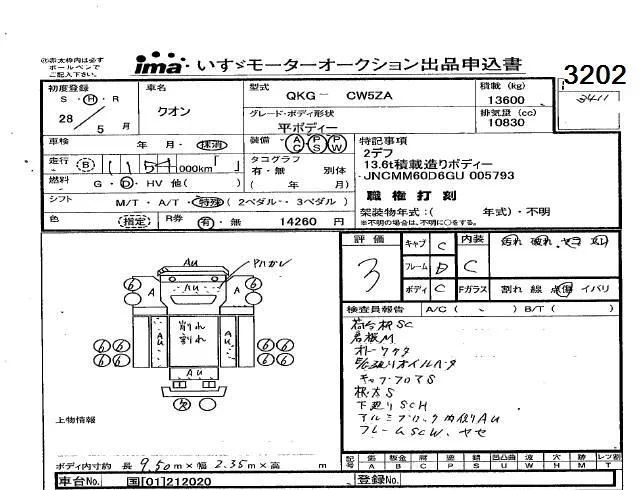 ㊟赤太枠内は必ず
ボールペンで
ご記入下さい。
ima いすゞモーターオークション出品申込書
3202
3411
初度登録
S ・ H ・ R
28 / 5 月
車名
クオン
型式
QKG － CW5ZA
積載 (kg)
13600
グレード・ボディ形状
平ボディー
排気量 (cc)
10830
車検
年 月・抹消
装備
AC PS PW
特記事項
2デフ
13.6t積載造りボディー
JNCMM60D6GU 005793
職権打刻
走行 B
1154 000km
タコグラフ
有・無 別体
( 年 月)
燃料
G・D・HV 他( )
シフト
M/T・A/T・特殊 ( 2ペダル・ 3ペダル )
架装物年式:( 年式)・不明
※不明の場合は、不明に○をする。
色
(指定)
R券
有・無 14260 円
評価
3
キャブ C
フレーム D
ボディ C
内装
C
汚れ 破れ ヤコ スレ
Fガラス
割れ 線 点傷 イバリ
検査員報告 A/C ( 、 ) B/T ( )
荷台根SC
オートクケタ
キャブフロアS
根太S
下廻りSCH
アルミブロック内側AU
フレームSCW、ヤセ
AU
Pハガレ
A
A
AU
AU
削れ
割れ
AU
AU
6 6
6 6 6 6
6 6 6 6
上物情報
ボディ内寸約 長 9.50 m × 幅 2.35 m × 高 m
記号
傷 板金 腐 塗 錆 凹凸曲 波 穴 跡 レンズ割
A B C P S U W H M T
車台No.
国[01]212020
登録No.